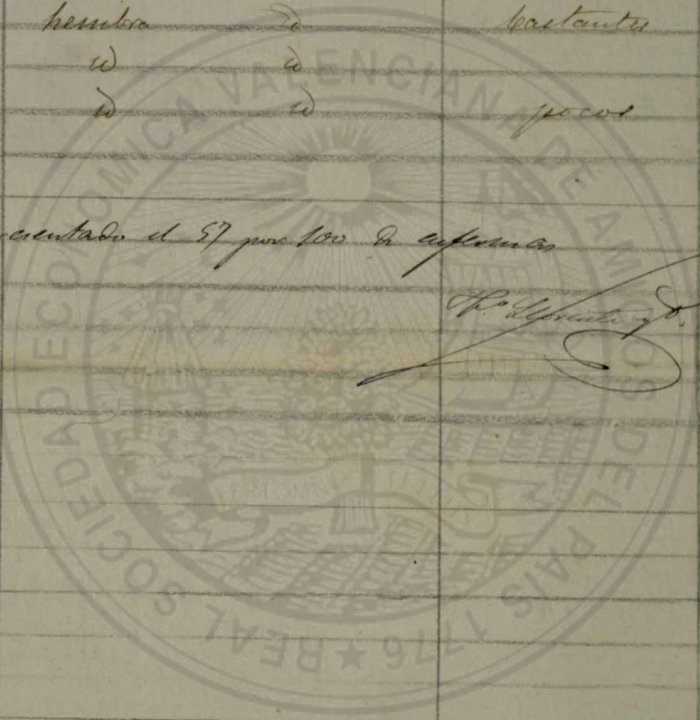 hembra id bastantes
id id
id id pocos
esentado el 57 por 100 de enfermas
REAL SOCIEDAD ECONOMICA VALENCIANA DE AMIGOS DEL PAIS 1776